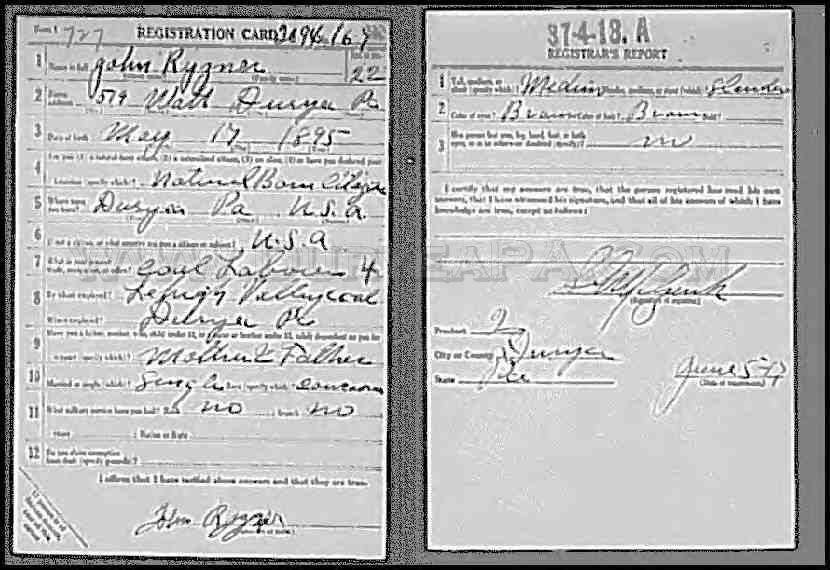 Form 1 727 REGISTRATION CARD
1 Name in full John Ryzner Age in yrs. 22
2 Home address 579 Watt Duryea Pa
3 Date of birth May 17 1895
4 Are you (1) a natural-born citizen, (2) a naturalized citizen, (3) an alien, (4) or have you declared your
intention (specify which)? Natural Born Citizen
5 Where were you born? Duryea Pa U.S.A
6 If not a citizen, of what country are you a citizen or subject? U.S.A
7 What is your present trade, occupation, or office? Coal Laborer 4
8 By whom employed? Lehigh Valley Coal
Where employed? Duryea Pa
9 Have you a father, mother, wife, child under 12, or a sister or brother under 12, solely dependent on you for
support (specify which)? Mother & Father
10 Married or single (which)? Single Race (specify which)? Caucasian
11 What military service have you had? Rank no ; branch no
years ; Nation or State
12 Do you claim exemption from draft (specify grounds)?
I affirm that I have verified above answers and that they are true.
John Ryzner
37-4-18. A
REGISTRAR'S REPORT
1 Tall, medium, or short (specify which)? Medium Slender, medium, or stout (which)? Slender
2 Color of eyes? Brown Color of hair? Brown Bald?
3 Has person lost arm, leg, hand, foot, or both eyes, or is he otherwise disabled (specify)? no
I certify that my answers are true, that the person registered has read his own
answers, that I have witnessed his signature, and that all of his answers of which I have
knowledge are true, except as follows:
(Signature of registrar)
Precinct 2
City or County Duryea
State Pa
June 5-17
(Date of registration)